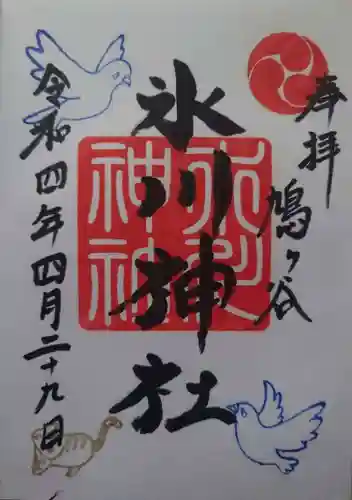 奉拝
鳩ヶ谷
氷川神社
氷川神社
令和四年四月二十九日